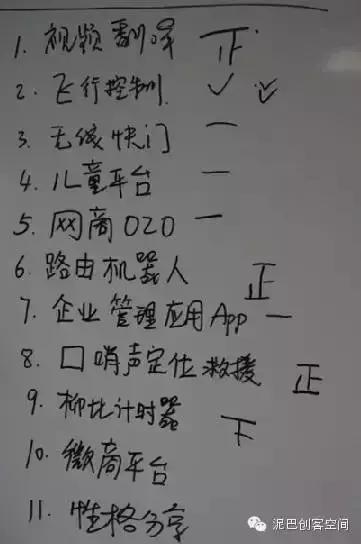 1. 视频翻译 正
2. 飞行控制
3. 无线快门 一
4. 儿童平台 一
5. 网商O2O 一
6. 路由机器人 正
7. 企业管理应用App 一
8. 口哨声定位救援 正
9. 柳比计时器 下
10. 微商平台
11. 性格分享
泥巴创客空间